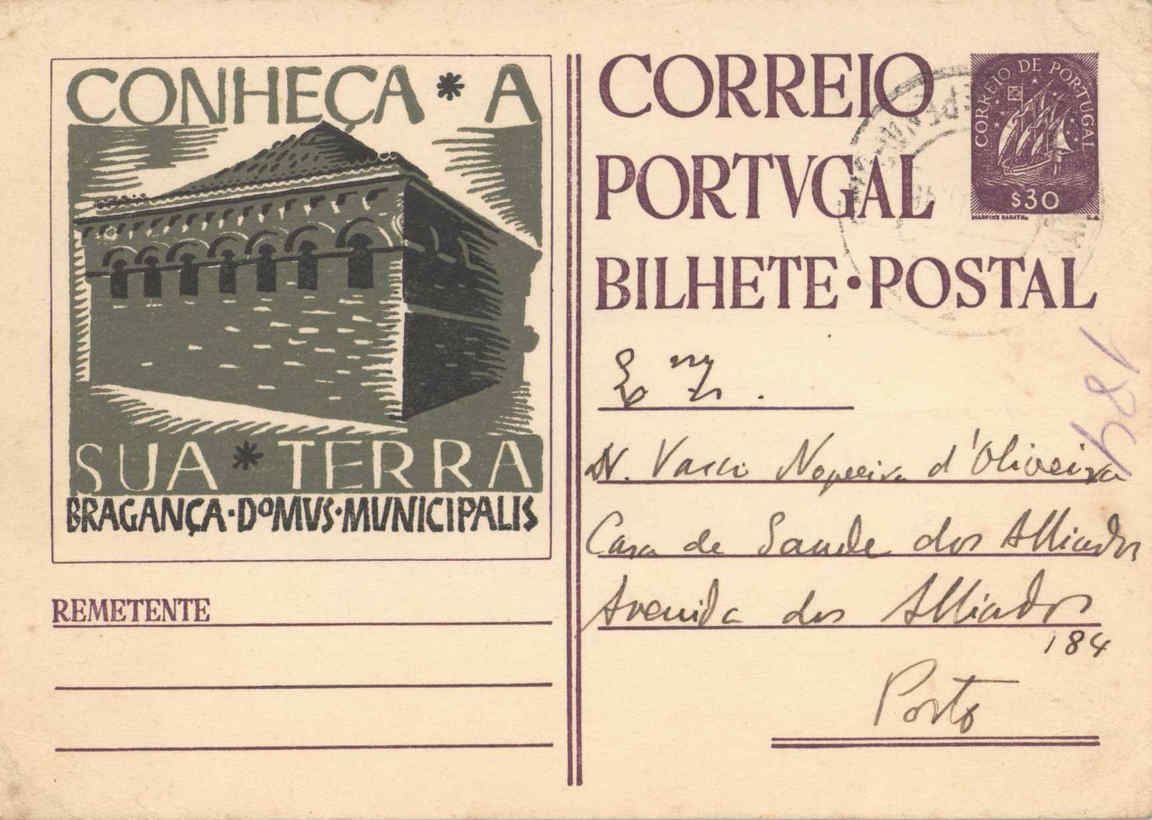 CONHEÇA * A
SUA * TERRA
BRAGANÇA · DOMVS · MVNICIPALIS
REMETENTE
CORREIO
PORTVGAL
BILHETE • POSTAL
CORREIO DE PORTUGAL
$30
Dr. Vasco Nogueira d'Oliveira
Casa de Saude dos Alliados
Avenida dos Alliados
184
Porto
184